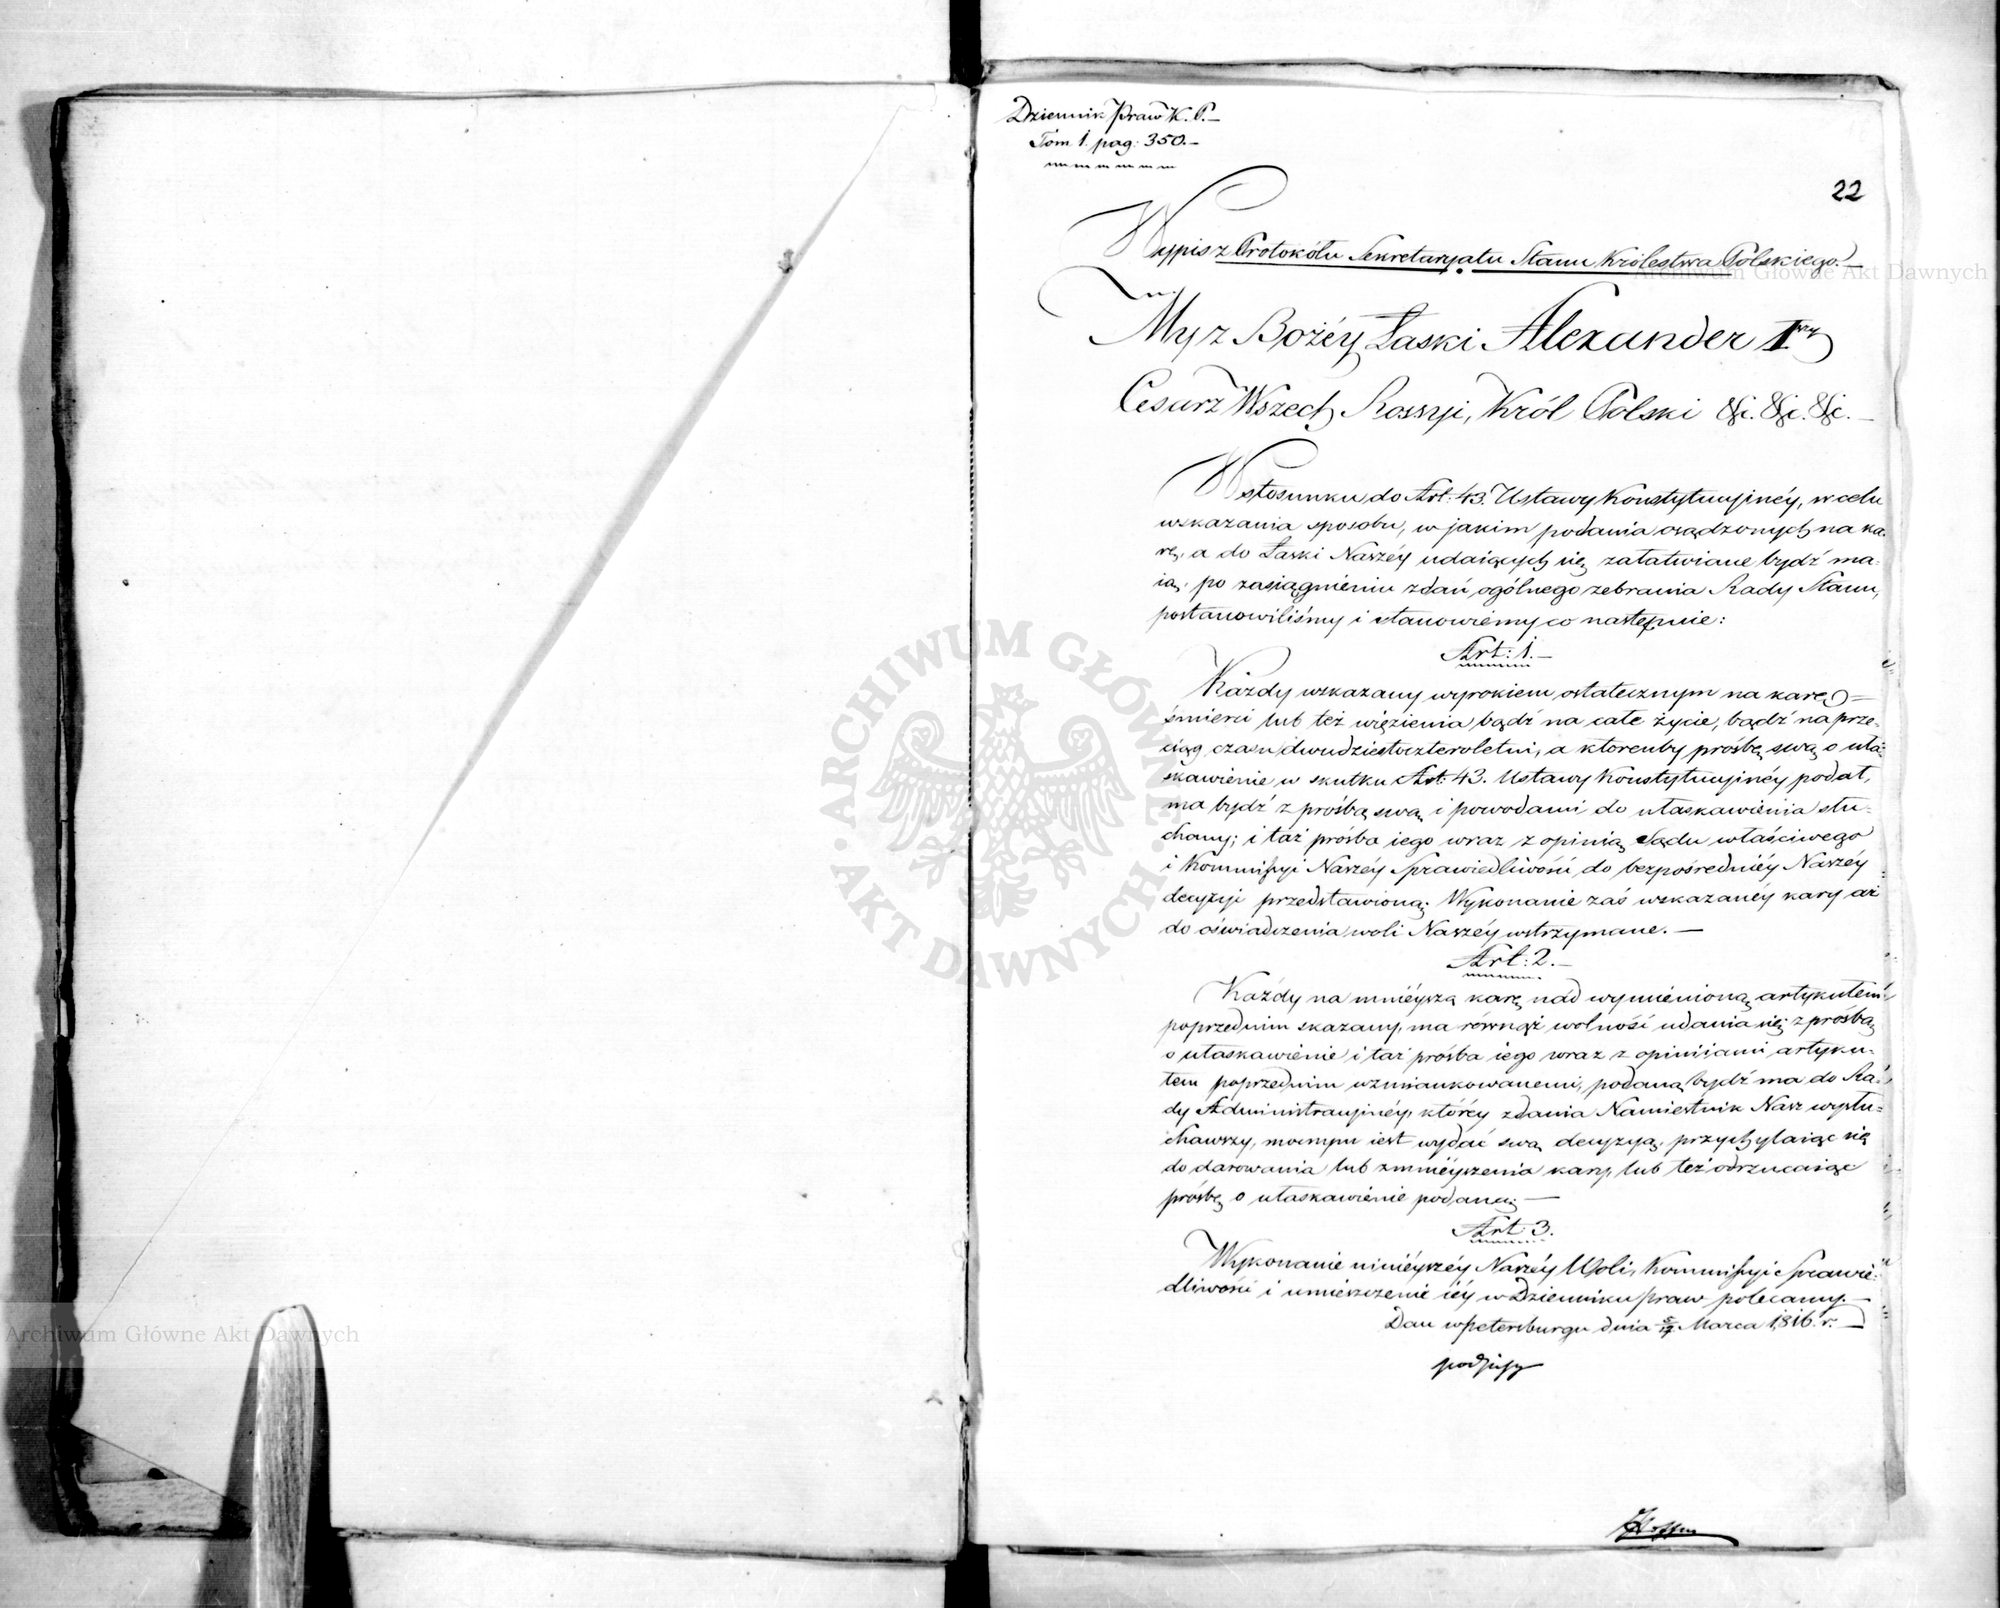 Dziennik Praw K. P.–
Tom 1. pag: 350.–
22
Wypis z Protokółu Sekretaryatu Stanu Królestwa Polskiego.–
My z Bożéy Łaski Alexander Iwszy
Cesarz Wszech Rossyi, Król Polski &c. &c. &c.–
W stosunku do Art: 43. Ustawy Konstytucyinéy, w celu
wskazania sposobu, w jakim podania osądzonych na ka-
rę, a do Łaski Naszéy udaiących się załatwiane bydź ma-
ią, po zasiągnieniu zdań ogólnego zebrania Rady Stanu,
postanowiliśmy i stanowiemy co następuie:
Art: 1.–
Każdy wskazany wyrokiem ostatecznym na karę
śmierci lub też więzienia bądź na całe życie, bądź na prze-
ciąg czasu dwudziestoczteroletni, a którenby prośbę swą o uła-
skawienie w skutku Art: 43. Ustawy Konstytucyinéy podał,
ma bydź z prośbą swą i powodami do ułaskawienia słu-
chany; i taż prośba iego wraz z opinią Sądu właściwego
i Kommissyi Naszéy Sprawiedliwości do bezpośrednéy Naszéy
decyzyi przedstawioną. Wykonanie zaś wskazanéy kary aż
do oświadczenia woli Naszéy wstrzymane.–
Art: 2.–
Każdy na mnieyszą karę nad wymienioną artykułem
poprzednim skazany, ma równąż wolność udania się z prośbą
o ułaskawienie i taż prośba iego wraz z opiniiami artyku-
łem poprzednim wzmiankowanemi, podaną bydź ma do Ra-
dy Administracyinéy, któréy zdania Namiestnik Nasz wysłu-
chawszy, mocnym iest wydać swą decyzyą, przychylaiąc się
do darowania lub zmnieyszenia kary, lub też odrzucaiąc
prośbę o ułaskawienie podaną.–
Art: 3.
Wykonanie ninieyszéy Naszéy Woli, Kommissyi Sprawie-
dliwości i umieszczenie iéy w Dzienniku praw polecamy.–
Dan w Petersburgu dnia 5/17 Marca 1816. r.–
podpisy
ARCHIWUM GŁÓWNE · AKT DAWNYCH ·
Archiwum Główne Akt Dawnych
Archiwum Główne Akt Dawnych